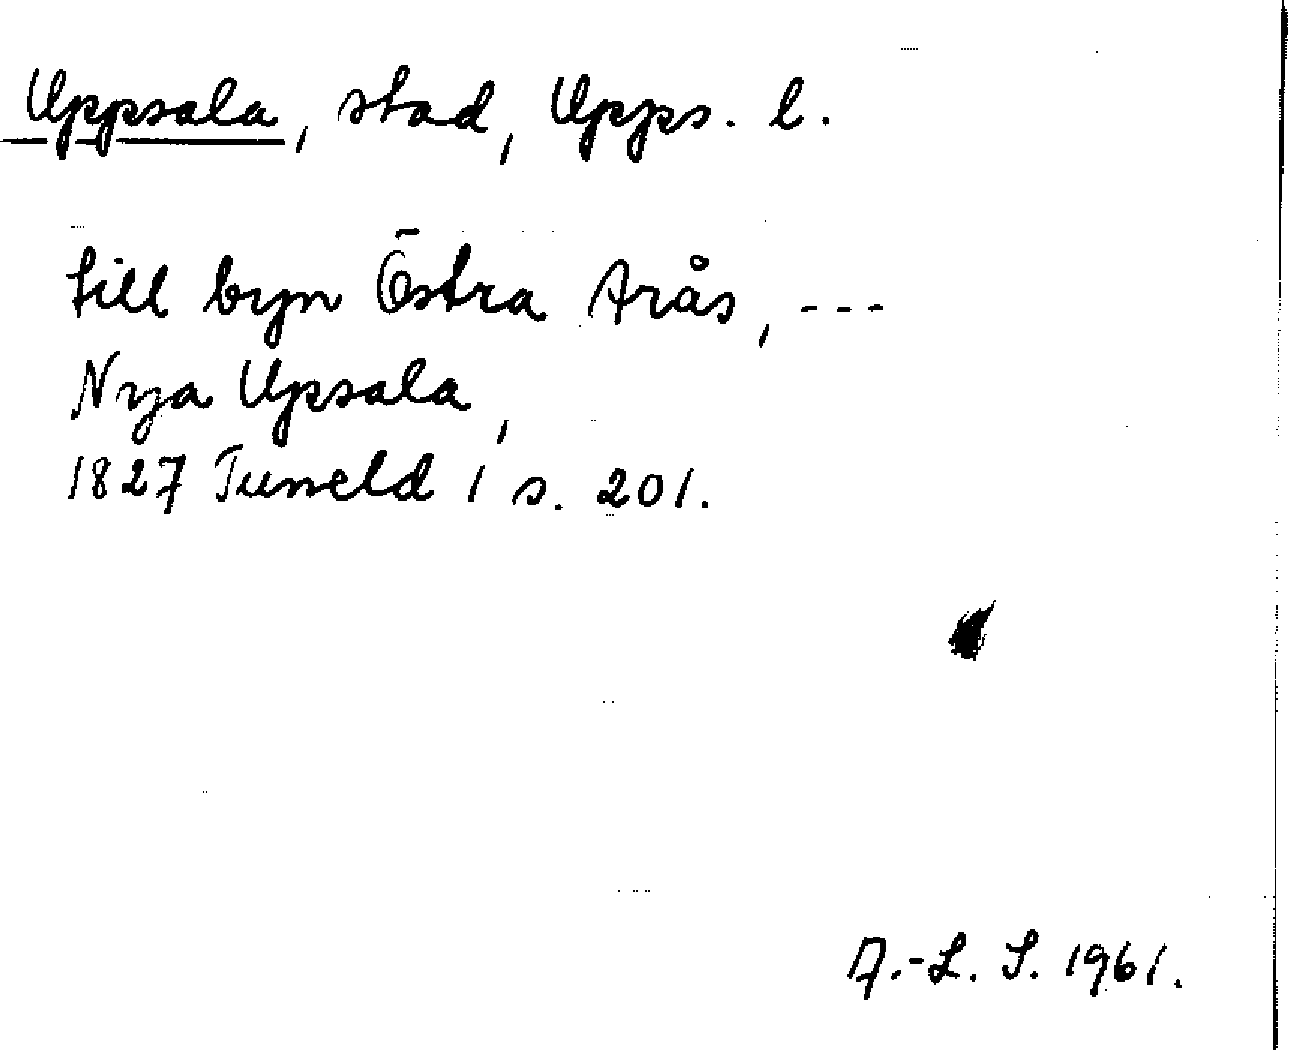 Uppsala, stad, Upps. l.
till byn Östra Arås, ---
Nya Upsala,
1827 Tuneld 1 s. 201.
A.-L. S. 1961.